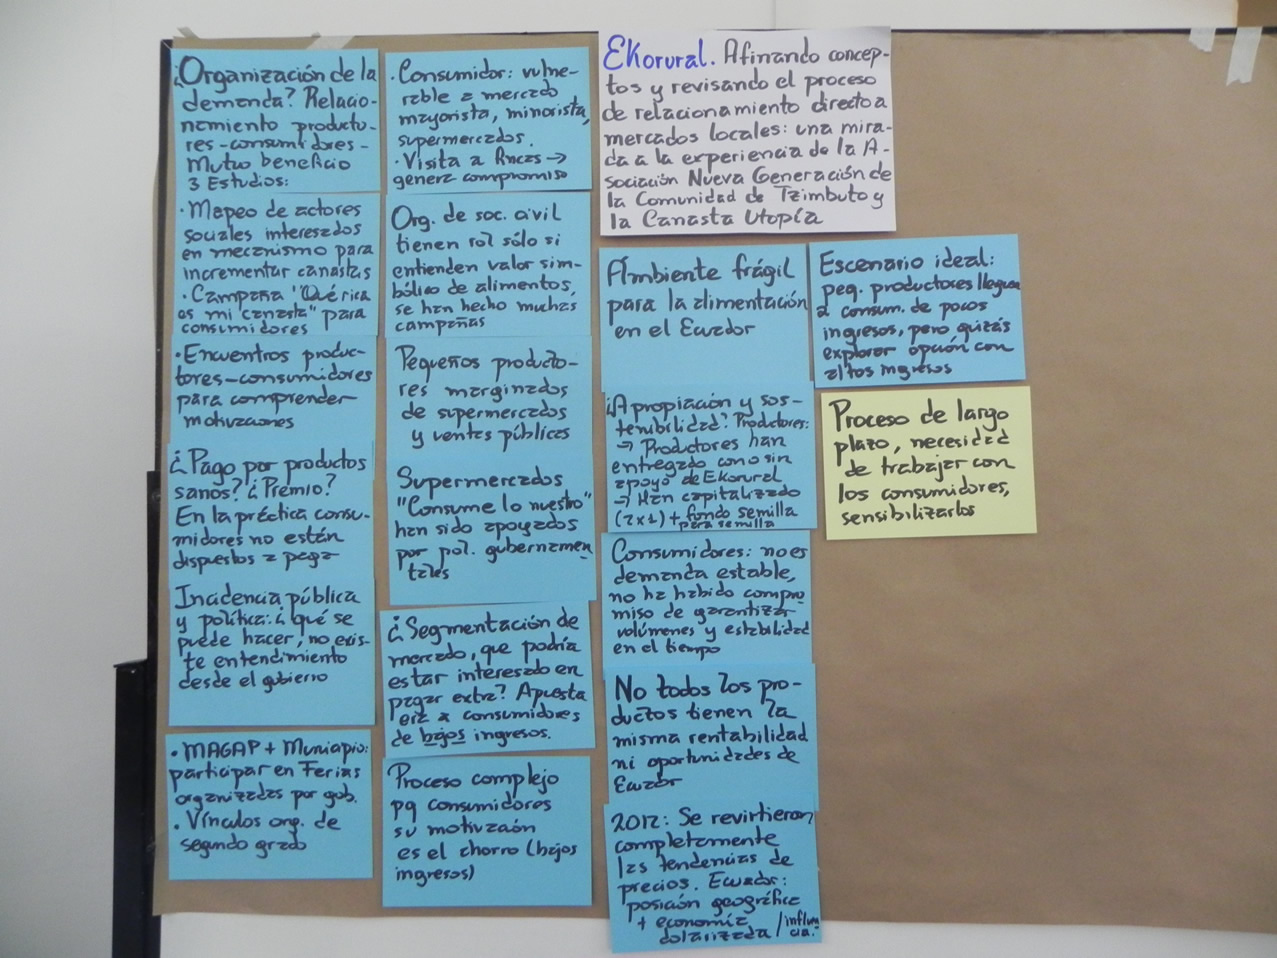 ¿Organización de la
demanda? Relacio-
namiento producto-
res-consumidores-
Mutuo beneficio
3 Estudios:
• Mapeo de actores
sociales interesados
en mecanismo para
incrementar canastas
• Campaña "Qué rica
es mi canasta" para
consumidores
• Encuentros produc-
tores-consumidores
para comprender
motivaciones
¿Pago por productos
sanos? ¿Premio?
En la práctica consu-
midores no están
dispuestos a pagar
Incidencia pública
y política: ¿qué se
puede hacer, no exis-
te entendimiento
desde el gobierno
• MAGAP + Municipio:
participar en Ferias
organizadas por gob.
• Vínculos org. de
segundo grado
• Consumidor: vulne-
rable a mercado
mayorista, minorista,
supermercados.
• Visita a fincas →
genera compromiso
Org. de soc. civil
tienen rol sólo si
entienden valor sim-
bólico de alimentos,
se han hecho muchas
campañas
Pequeños producto-
res marginados
de supermercados
y ventas públicas
Supermercados
"Consume lo nuestro"
han sido apoyados
por pol. gubernamen-
tales
¿Segmentación de
mercado, que podría
estar interesado en
pagar extra? Apuesta
era a consumidores
de bajos ingresos.
Proceso complejo
pq consumidores
su motivación
es el ahorro (bajos
ingresos)
EKorural. Afinando concep-
tos y revisando el proceso
de relacionamiento directo a
mercados locales: una mira-
da a la experiencia de la A-
sociación Nueva Generación de
la Comunidad de Tzimbuto y
la Canasta Utopía
Ambiente frágil
para la alimentación
en el Ecuador
¿Apropiación y sos-
tenibilidad? Productores:
→ Productores han
entregado con o sin
apoyo de EKorural
→ Han capitalizado
(2x1) + fondo semilla
para semilla
Consumidores: no es
demanda estable,
no ha habido compro
miso de garantizar
volúmenes y estabilidad
en el tiempo
No todos los pro-
ductos tienen la
misma rentabilidad
ni oportunidades de
Ecuador
2012: Se revirtieron
completamente
las tendencias de
precios. Ecuador:
posición geográfica
+ economía
dolarizada / influen
cia.
Escenario ideal:
peq. productores lleguen
a consum. de pocos
ingresos, pero quizás
explorar opción con
altos ingresos
Proceso de largo
plazo, necesidad
de trabajar con
los consumidores,
sensibilizarlos